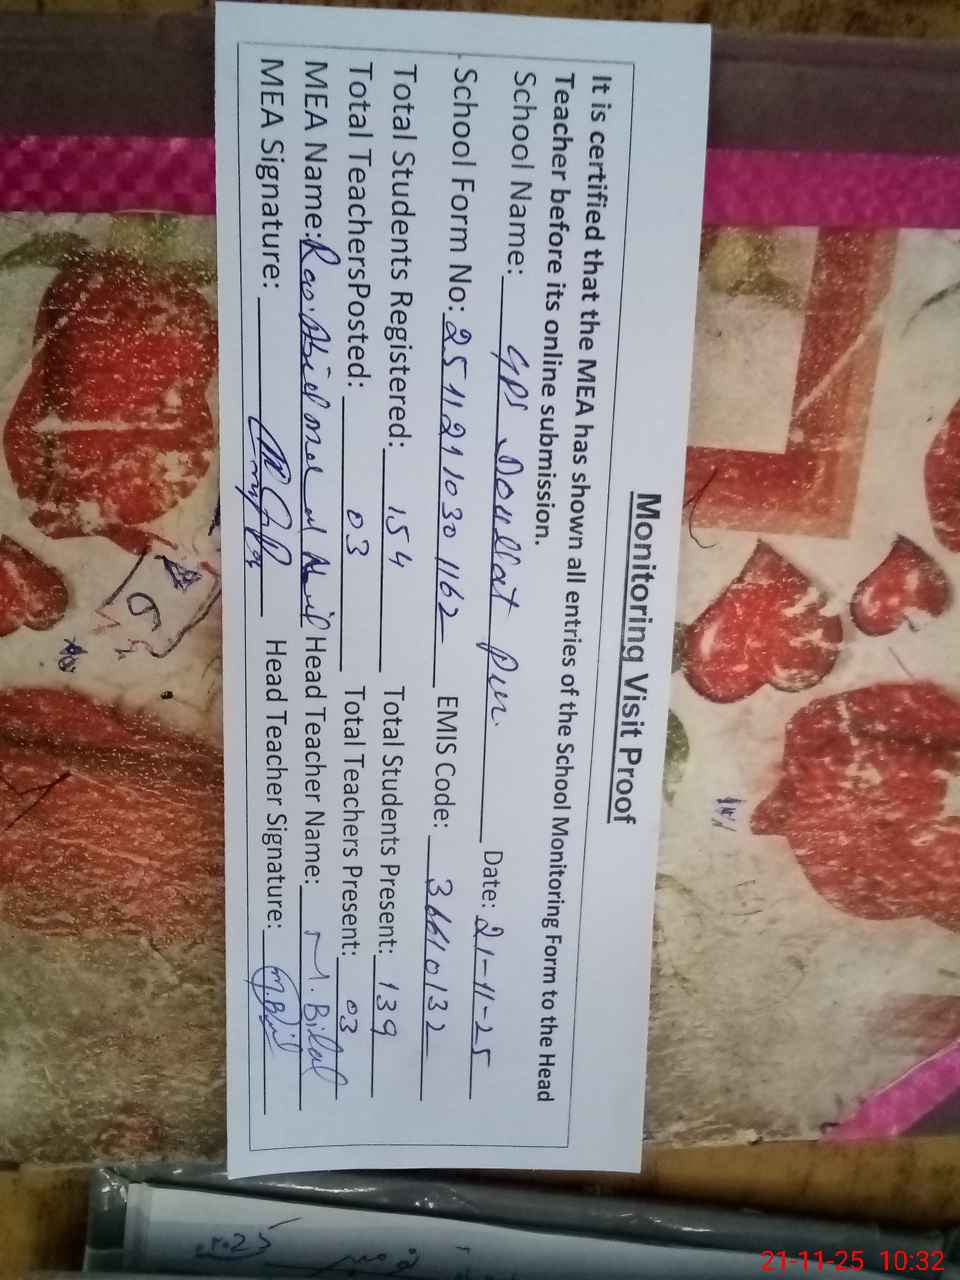 Monitoring Visit Proof
It is certified that the MEA has shown all entries of the School Monitoring Form to the Head
Teacher before its online submission.
School Name: GPS Doullat Pur. Date: 21-11-25
School Form No: 2511211030 1162 EMIS Code: 36610132
Total Students Registered: 154 Total Students Present: 139
Total TeachersPosted: 03 Total Teachers Present: 03
MEA Name: Rao Head Teacher Name: M. Bilal
MEA Signature: Head Teacher Signature: M.Bilal
21-11-25 10:32